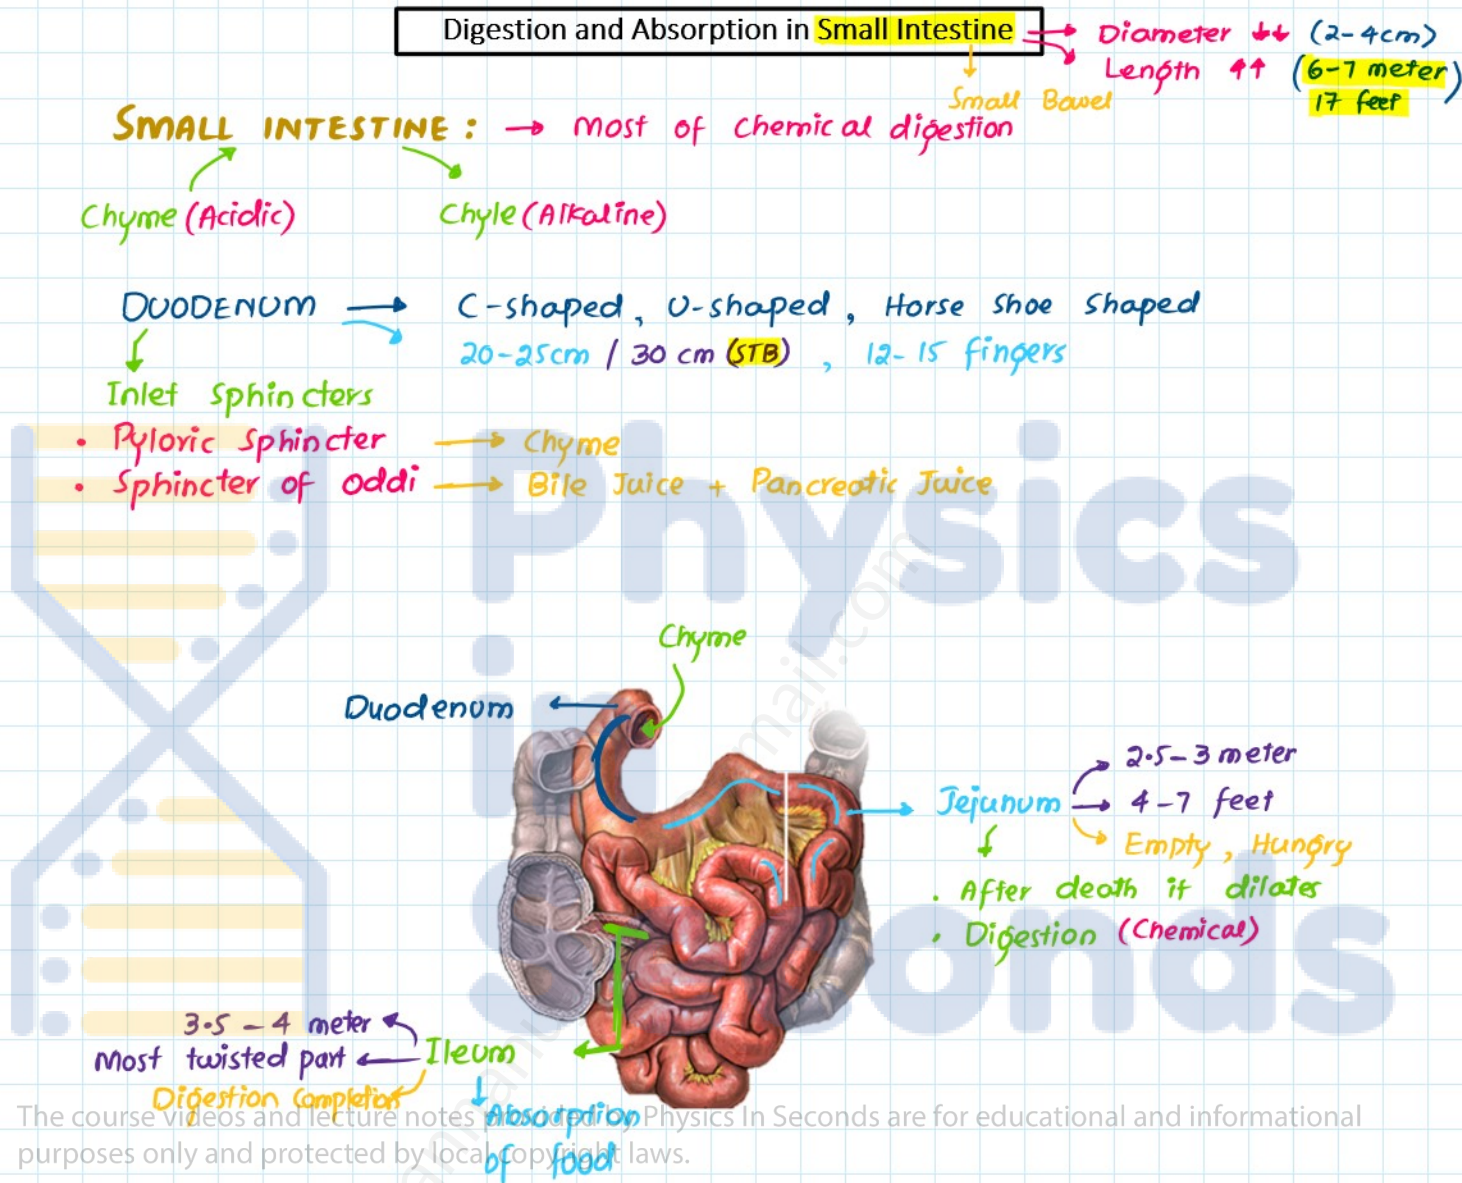 Digestion and Absorption in Small Intestine
Diameter ↓↓ (2-4cm)
Length ↑↑ (6-7 meter)
17 feet
Small Bowel
SMALL INTESTINE : → Most of chemical digestion
Chyme (Acidic)
Chyle (Alkaline)
DUODENUM → C-shaped, U-shaped, Horse Shoe Shaped
20-25cm / 30 cm (STB) , 12-15 fingers
Inlet Sphincters
• Pyloric Sphincter → Chyme
• Sphincter of Oddi → Bile Juice + Pancreatic Juice
Physics
in
Seconds
Chyme
Duodenum
Jejunum
2.5-3 meter
4-7 feet
Empty, Hungry
• After death it dilates
• Digestion (Chemical)
3.5 - 4 meter
Most twisted part
Ileum
Digestion Completion
Absorption
of food
The course videos and lecture notes provided by Physics In Seconds are for educational and informational
purposes only and protected by local copyright laws.